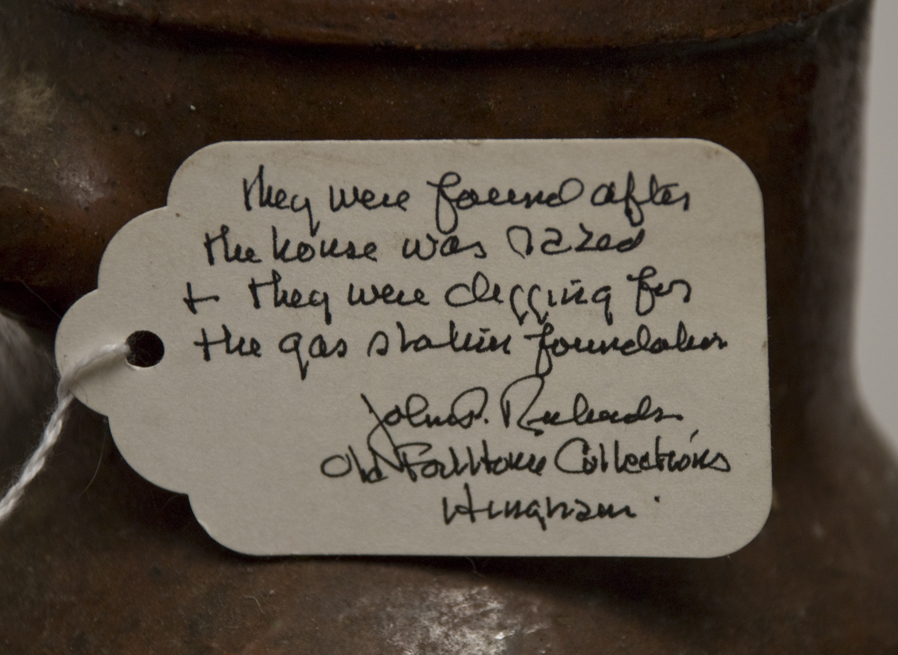 They were found after
the house was razed
+ they were digging for
the gas station foundation
John P. Richards
Old Fort House Collections
Hingham.